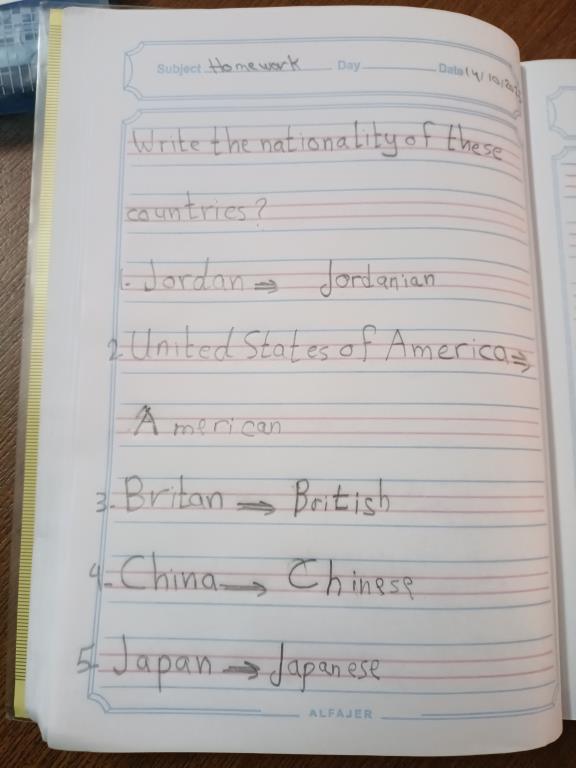 Subject Homework Day Date 14/10/202
Write the nationality of these
countries?
1. Jordan ⇒ Jordanian
2. United States of America ⇒
American
3. Britan ⇒ British
4- China → Chinese
5- Japan → Japanese
ALFAJER